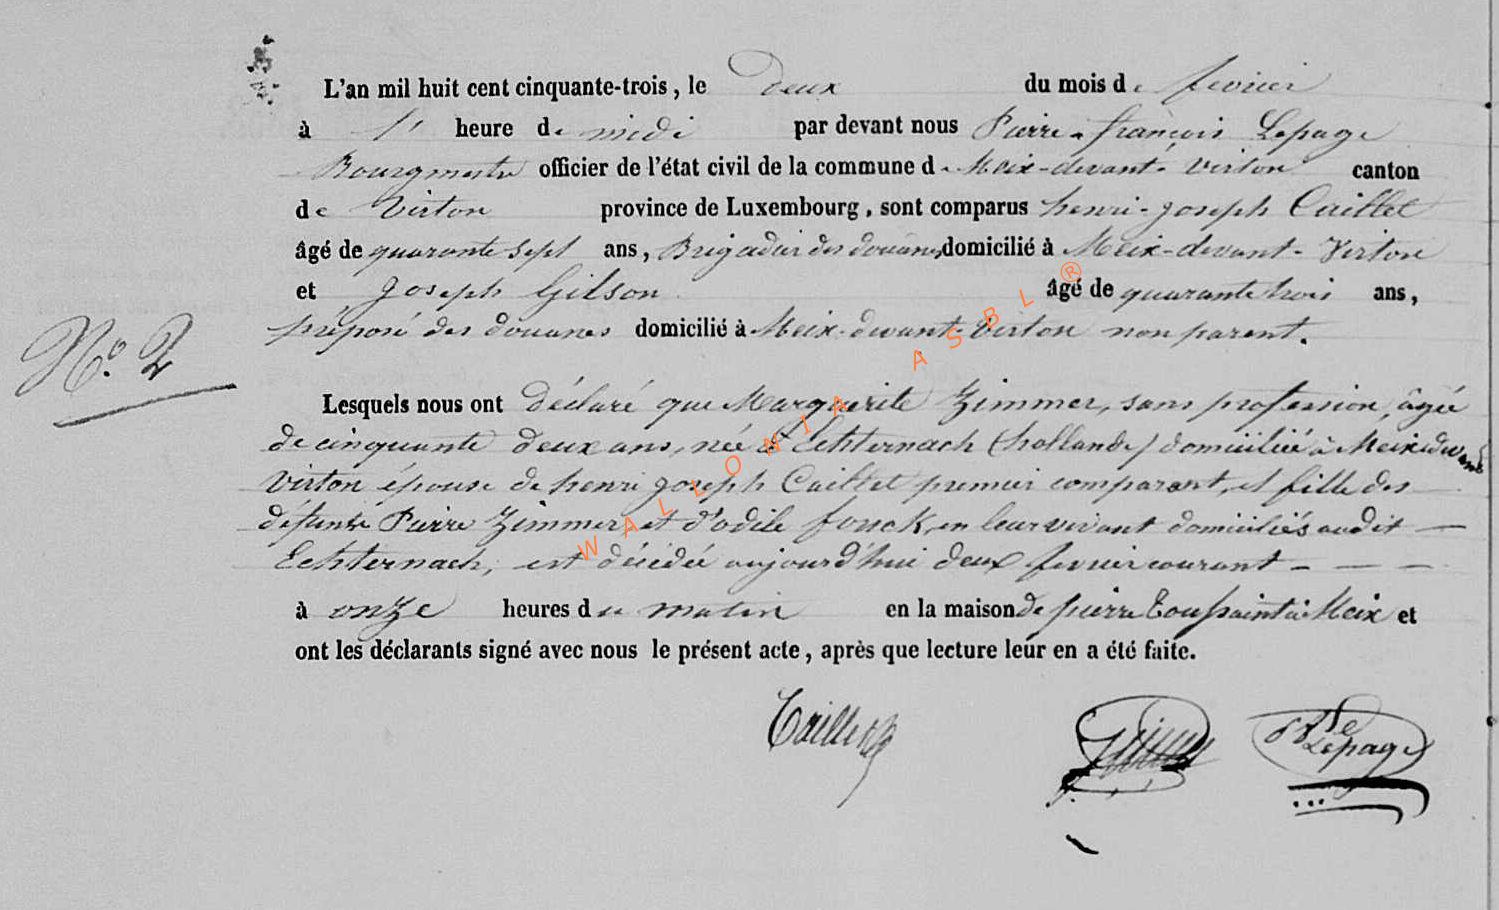 L'an mil huit cent cinquante-trois, le deux du mois de fevrier
à 1' heure de midi par devant nous Pierre-françois Lepage
Bourgmestre officier de l'état civil de la commune de Meix-devant-Virton canton
de Virton province de Luxembourg, sont comparus henri-joseph Caillet
âgé de quarante sept ans, Brigadier des douanes, domicilié à Meix-devant-Virton
et joseph Gilson âgé de quarante trois ans,
préposé des douanes domicilié à Meix-devant-Virton non parent.
N.° 2
Lesquels nous ont déclaré que Marguerite Zimmer, sans profession, âgée
de cinquante deux ans, née à Echternach (hollande) domiciliée à Meix devant
Virton épouse de henri joseph Caillet premier comparant, et fille des
défunts Pierre Zimmer et d'odile fonck, en leur vivant domiciliés audit
Echternach, est décédée aujourd'hui deux fevrier courant
à onze heures du matin en la maison de pierre Toussaint à Meix et
ont les déclarants signé avec nous le présent acte, après que lecture leur en a été faite.
Caillet
Lepage
WALLONIA ASBL ®